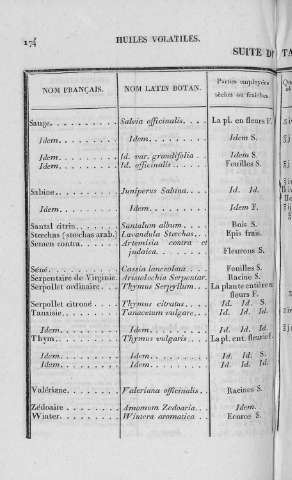 174 HUILES VOLATILES.
SUITE DU TA
NOM FRANÇAIS. NOM LATIN BOTAN. Parties employées sèches ou fraîches.
Sauge. Salvia officinalis. La pl. en fleurs F.
Idem. Idem. Idem S.
Idem. Id. var. grandifolia Idem S.
Idem. Id. officinalis Feuilles S.
Sabine. Juniperus Sabina. Id. Id.
Idem. Idem. Idem F.
Santal citrin. Santalum album. Bois S.
Stœchas (stœchas arab.) Lavandula Stœchas. Epis frais.
Semen contra. Artemisia contra et
judaica. Fleurons S.
Séné. Cassia lanceolata Feuilles S.
Serpentaire de Virginie. Aristolochia Serpentar. Racine S.
Serpollet ordinaire. Thymus Serpyllum. La plante entière en
fleurs F.
Serpollet citroné Thymus citratus. Id. Id. S.
Tanaisie. Tanacetum vulgare. Id. Id. Id.
Idem. Idem. Id. Id. Id.
Thym. Thymus vulgaris La pl. ent. fleurie
Idem. Idem. Id. Id. S.
Idem. Idem. Id. Id. Id.
Valériane. Valeriana officinalis. Racines S.
Zédoaire Amomum Zedoaria. Idem.
Winter. Wintera aromatica Ecorce S.